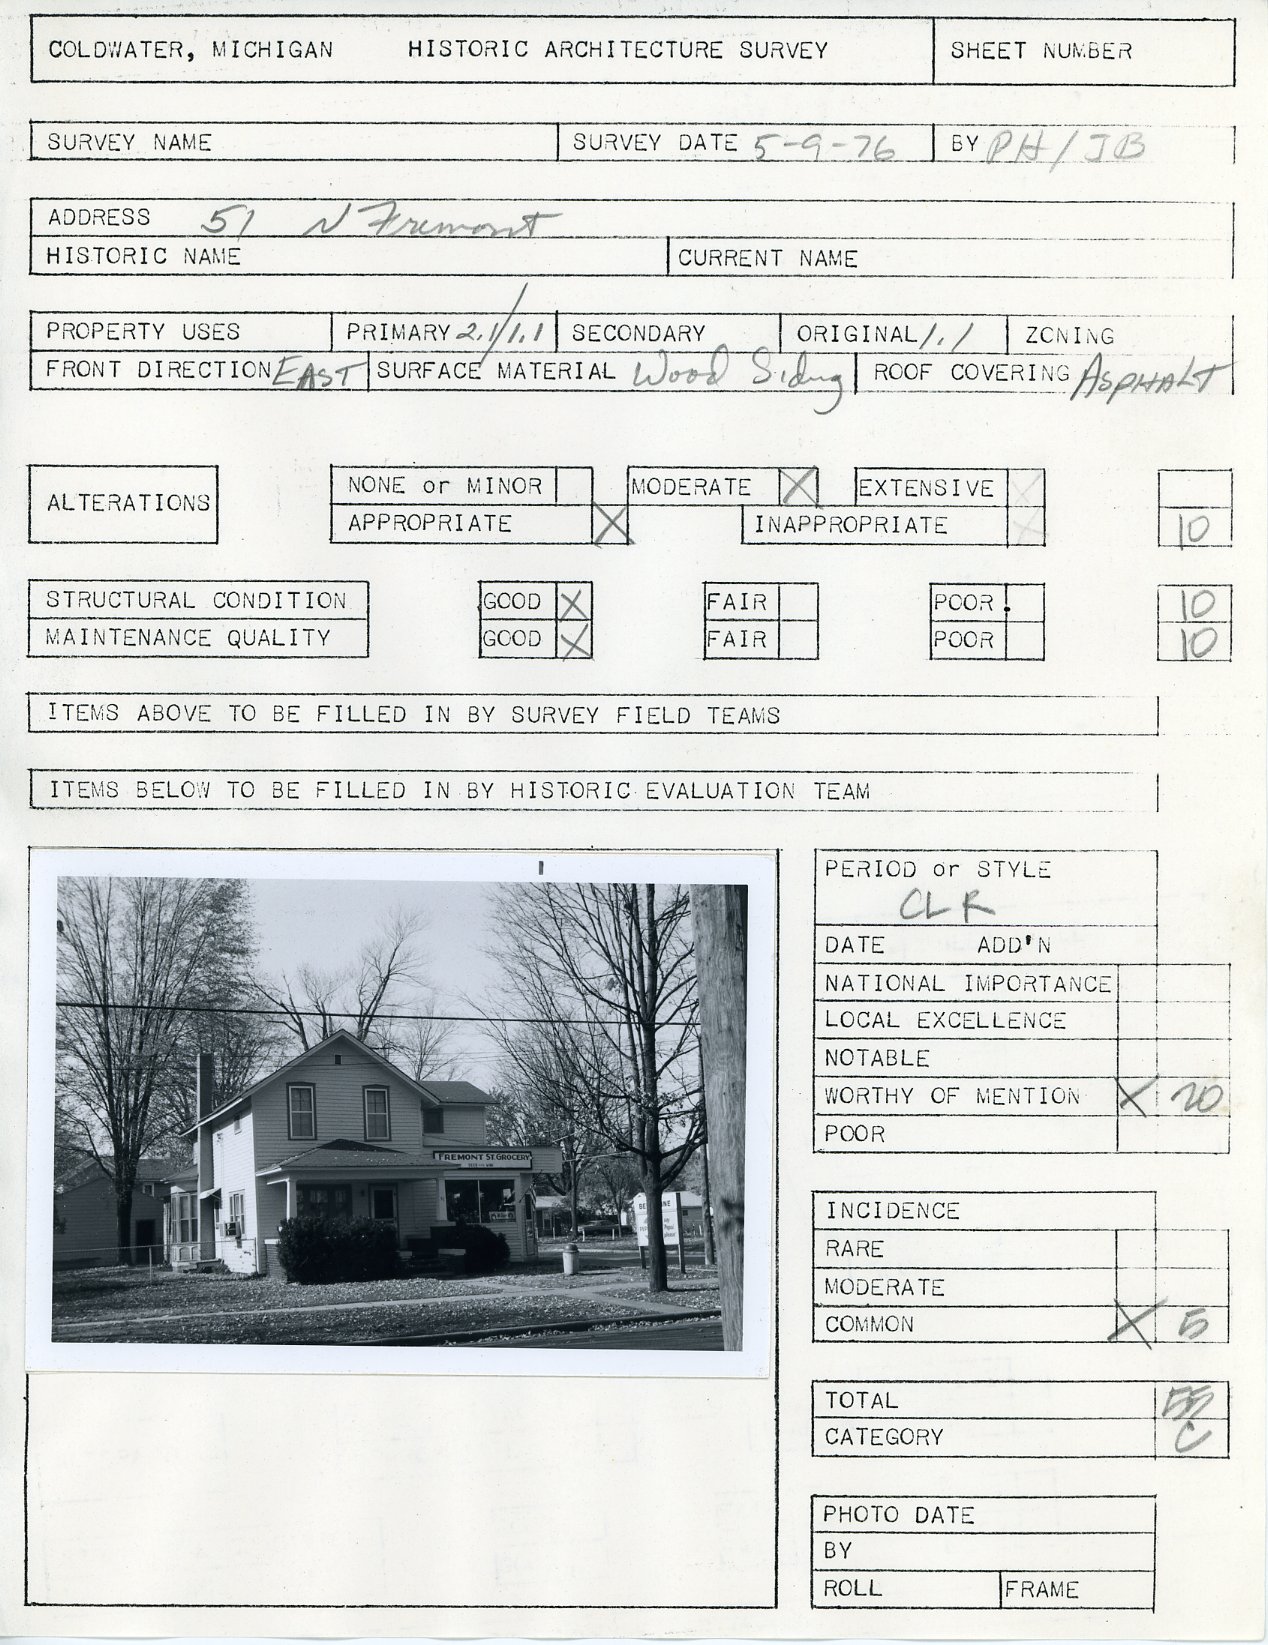 COLDWATER, MICHIGAN HISTORIC ARCHITECTURE SURVEY SHEET NUMBER
SURVEY NAME SURVEY DATE 5-9-76 BY PH/JB
ADDRESS 51 N Fremont
HISTORIC NAME CURRENT NAME
PROPERTY USES PRIMARY 2.1/1.1 SECONDARY ORIGINAL 1.1 ZONING
FRONT DIRECTION EAST SURFACE MATERIAL Wood Siding ROOF COVERING ASPHALT
ALTERATIONS
NONE or MINOR MODERATE X EXTENSIVE X
APPROPRIATE X INAPPROPRIATE X 10
STRUCTURAL CONDITION GOOD X FAIR POOR 10
MAINTENANCE QUALITY GOOD X FAIR POOR 10
ITEMS ABOVE TO BE FILLED IN BY SURVEY FIELD TEAMS
ITEMS BELOW TO BE FILLED IN BY HISTORIC EVALUATION TEAM
FREMONT ST. GROCERY
PERIOD or STYLE
CLR
DATE ADD'N
NATIONAL IMPORTANCE
LOCAL EXCELLENCE
NOTABLE
WORTHY OF MENTION X 20
POOR
INCIDENCE
RARE
MODERATE
COMMON X 5
TOTAL 55
CATEGORY C
PHOTO DATE
BY
ROLL FRAME